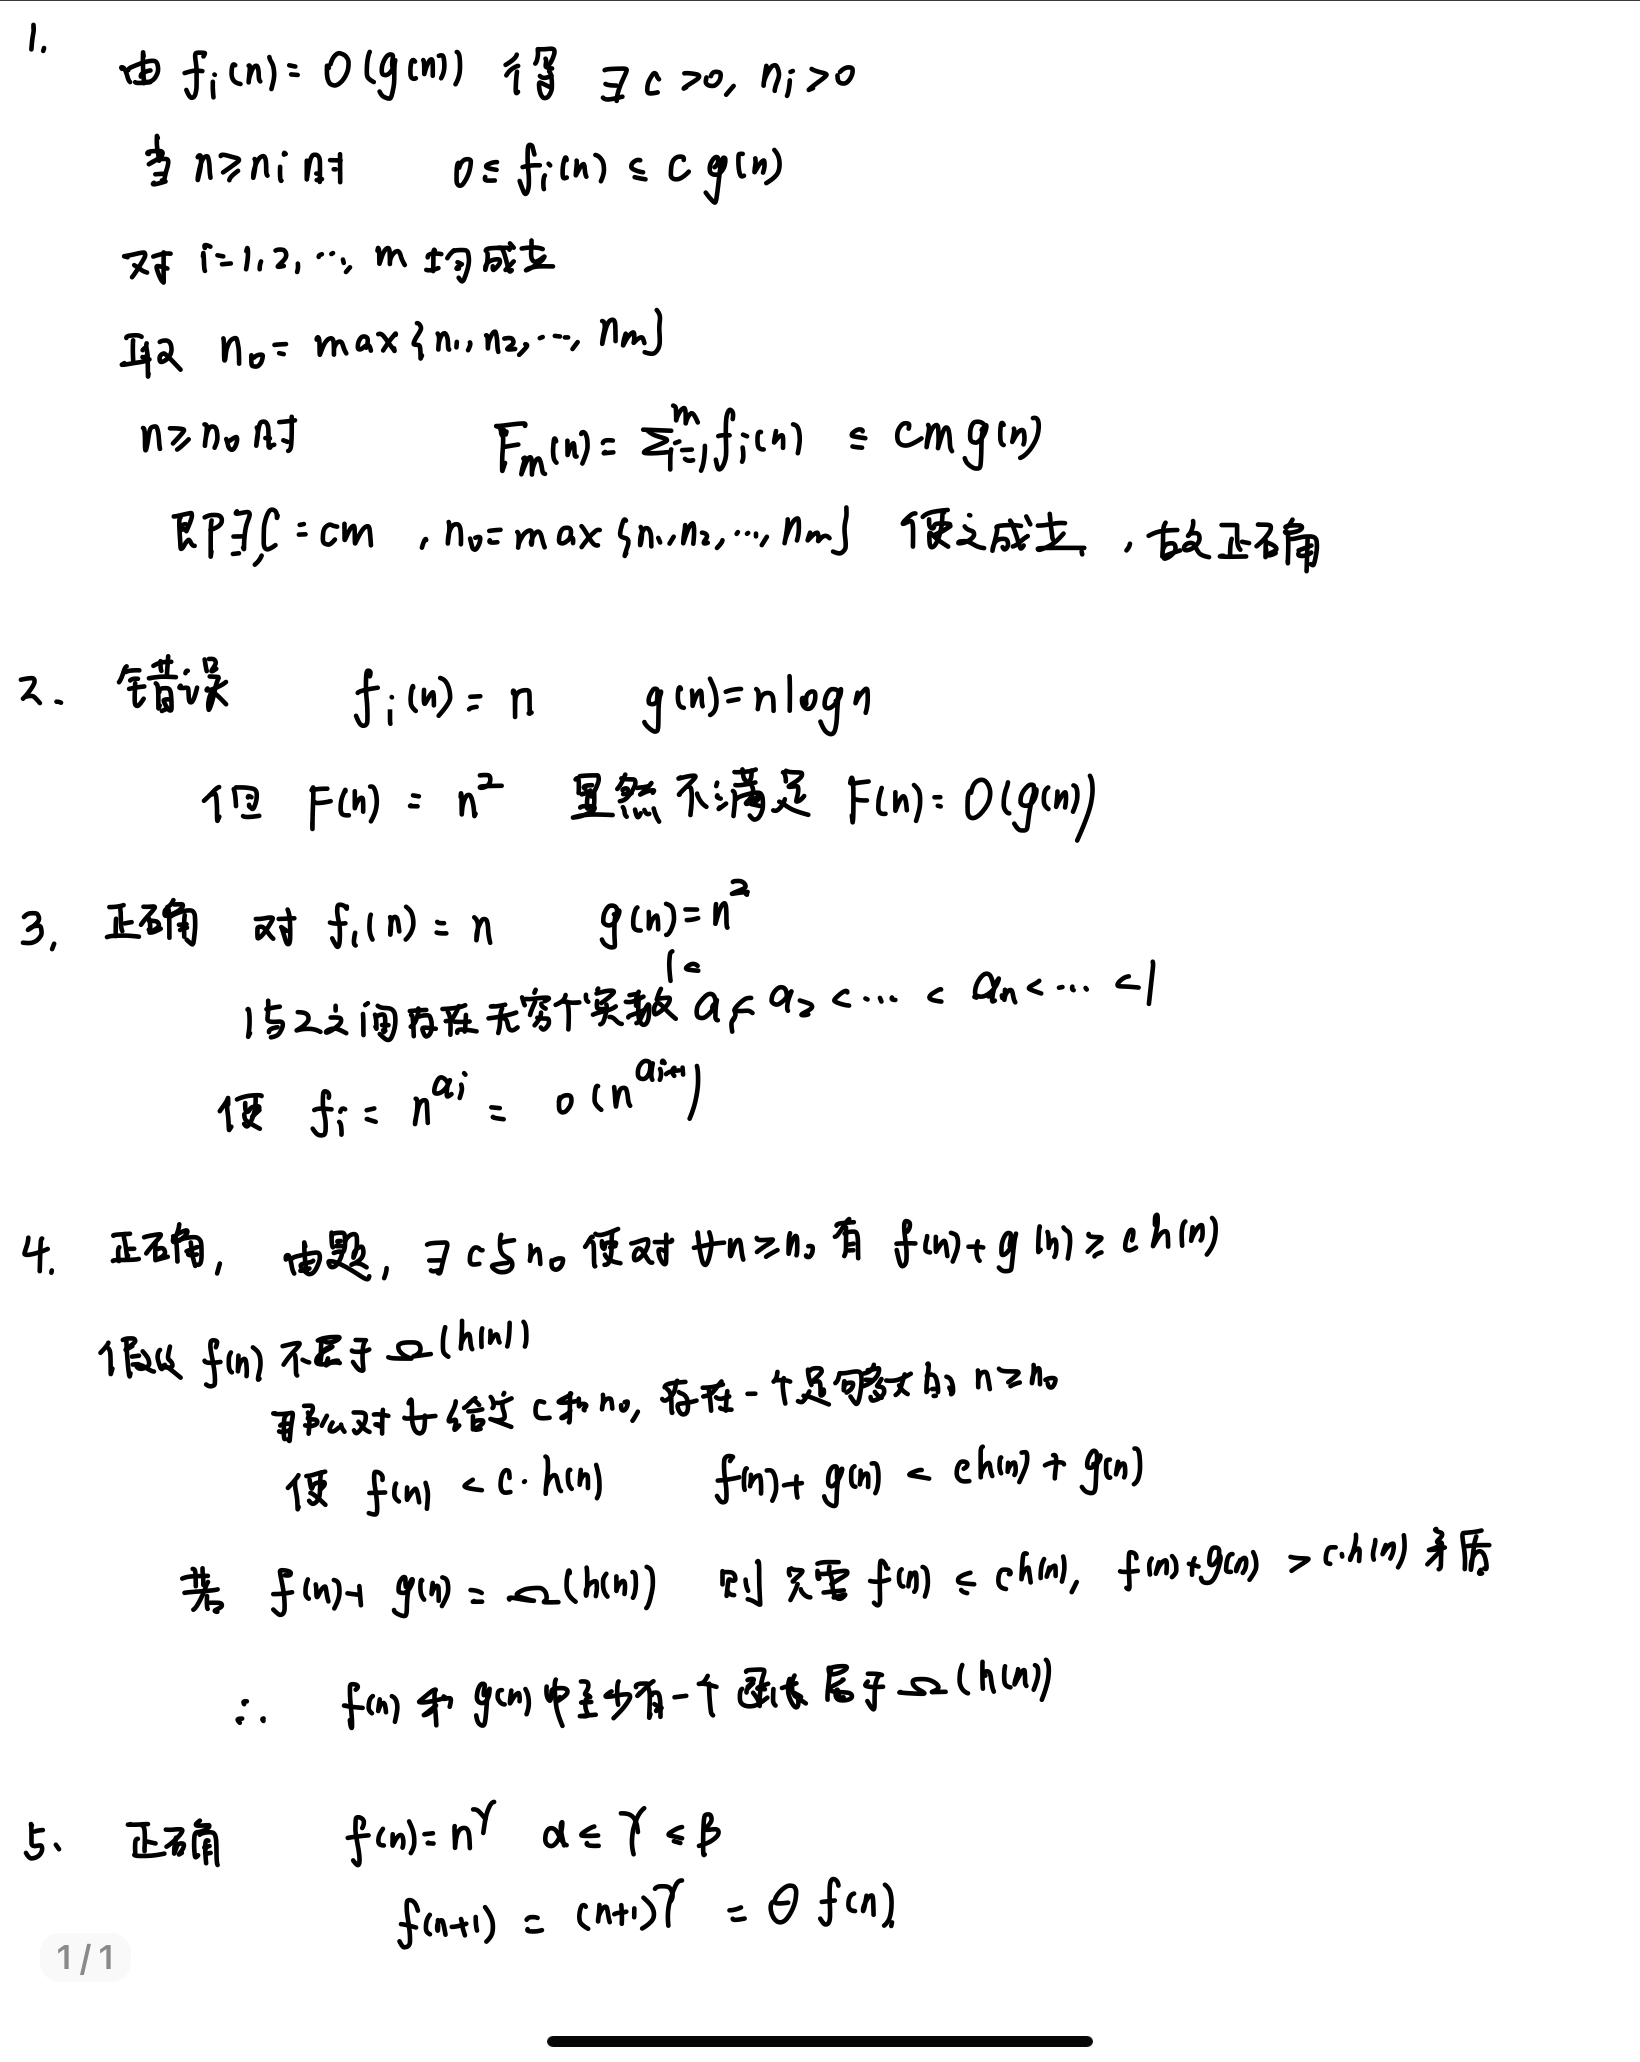 1.
由 fᵢ(n) = O(g(n)) 得 ∃ c >0, nᵢ>0
当 n≥nᵢ 时 0≤ fᵢ(n) ≤ c g(n)
对 i=1,2,…, m 均成立
取 n₀ = max{n₁,n₂,…, nₘ}
n≥n₀ 时 Fₘ(n) = Σᵢ₌₁ᵐ fᵢ(n) ≤ cm g(n)
即∃C = cm , n₀ = max {n₁,n₂,…, nₘ} 使之成立 , 故正确
2. 错误 fᵢ(n) = n g(n)=nlogn
但 F(n) = n² 显然不满足 F(n) = O(g(n))
3. 正确 对 f₁(n) = n g(n)=n²
1与2之间存在无穷个实数 1< a₁< a₂ <… < aₙ<… <1
使 fᵢ = n^aᵢ = o(n^aᵢ₊₁)
4. 正确, 由题, ∃ c与n₀ 使对∀n≥n₀ 有 f(n)+ g(n) ≥ c h(n)
假设 f(n) 不属于 Ω(h(n))
那么对∀给定 c和n₀, 存在一个足够大的 n≥n₀
使 f(n) < c· h(n) f(n)+ g(n) < ch(n) + g(n)
若 f(n)+ g(n) = Ω(h(n)) 则只需 f(n) ≤ ch(n), f(n)+g(n) > c·h(n) 矛盾
∴ f(n) 和 g(n) 中至少有一个函数属于 Ω(h(n))
5、 正确 f(n)= n^γ α ≤ γ ≤ β
f(n+1) = (n+1)^γ = Θ f(n)
1/1